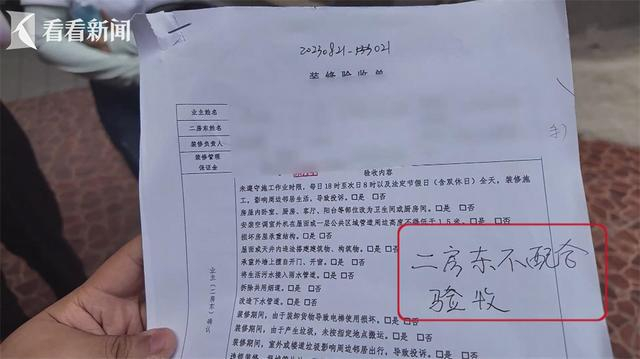 看看新闻
20230821-
装修验收单
业主姓名
二房东姓名
装修负责人
装修管理
保证金
验收内容
未遵守施工作业时限，每日18时至次日8时以及法定节假日（含双休日）全天，装修施
工，影响周边邻居生活，导致投诉。□是 □否
房屋内卧室、厨房、客厅、阳台等部位改为卫生间或厨房间。□是 □否
安装空调室外机在屋面或一层公共区域管道周边高度不得低于1.5米。□是 □否
损坏房屋承重结构。□是 □否
屋面或天井内违法搭建建筑物、构筑物。□是 □否
承重外墙上擅自开门、开窗。□是 □否
将生活污水接入雨水管道。□是 □否
拆除共用烟道。□是 □否
改造下水管道。□是 □否
装修期间，由于装卸货物导致电梯使用损坏。□是 □否
装修期间，由于产生垃圾，未按指定地点搬运。□是 □否
装修期间，室外或楼道垃圾影响周边邻居出行，导致投诉。□是 □否
业主（二房东）确认
二房东不配合
验收